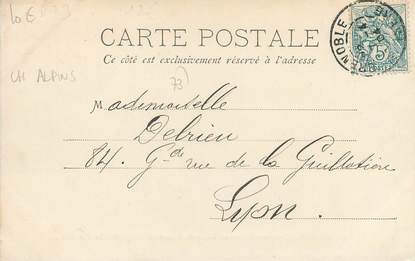 10€
CARTE POSTALE
Ce côté est exclusivement réservé à l'adresse
CH ALPINS
73)
Mademoiselle
Debrieu
84. Gde rue de la Guillotière
Lyon
GRENOBLE
5